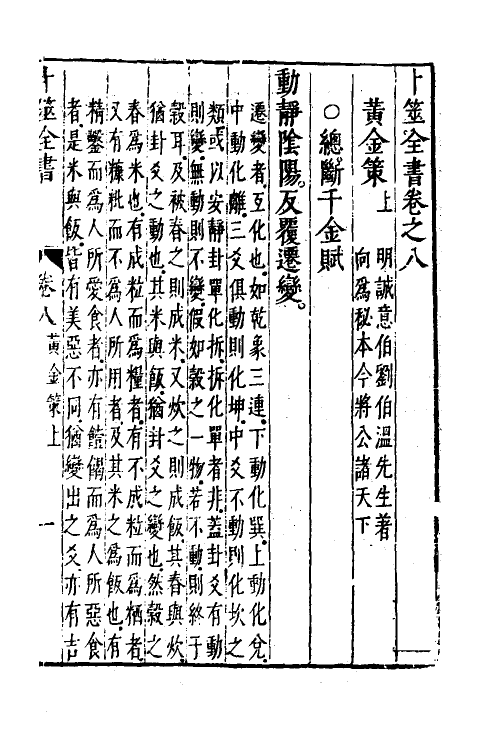 卜筮全書卷之八
黃金策上
明誠意伯劉伯溫先生著
向爲秘本今將公諸天下
○總斷千金賦
動靜陰陽。反覆遷變。
遷變者。互化也。如乾象三連。下動化巽。上動化兌。
中動化離。三爻俱動則化坤。中爻不動則化坎之
類。或以安靜卦單化拆。拆化單者非。蓋卦爻有動
則變。無動則不變。假如穀之一物。若不動。則終于
穀耳。及被舂之則成米。又炊之則成飯。其舂與炊。
猶卦爻之動也。其米與飯。猶卦爻之變也。然穀之
舂爲米也。有成粒而爲糧者。有不成粒而爲粞者。
又有糠粃而不爲人所用者。及其米之爲飯也。有
精鑿而爲人所愛食者。亦有饐餲而爲人所惡食
者。是米與飯。皆有美惡不同。猶變出之爻亦有吉
卜筮全書
卷八
黃金策上
一